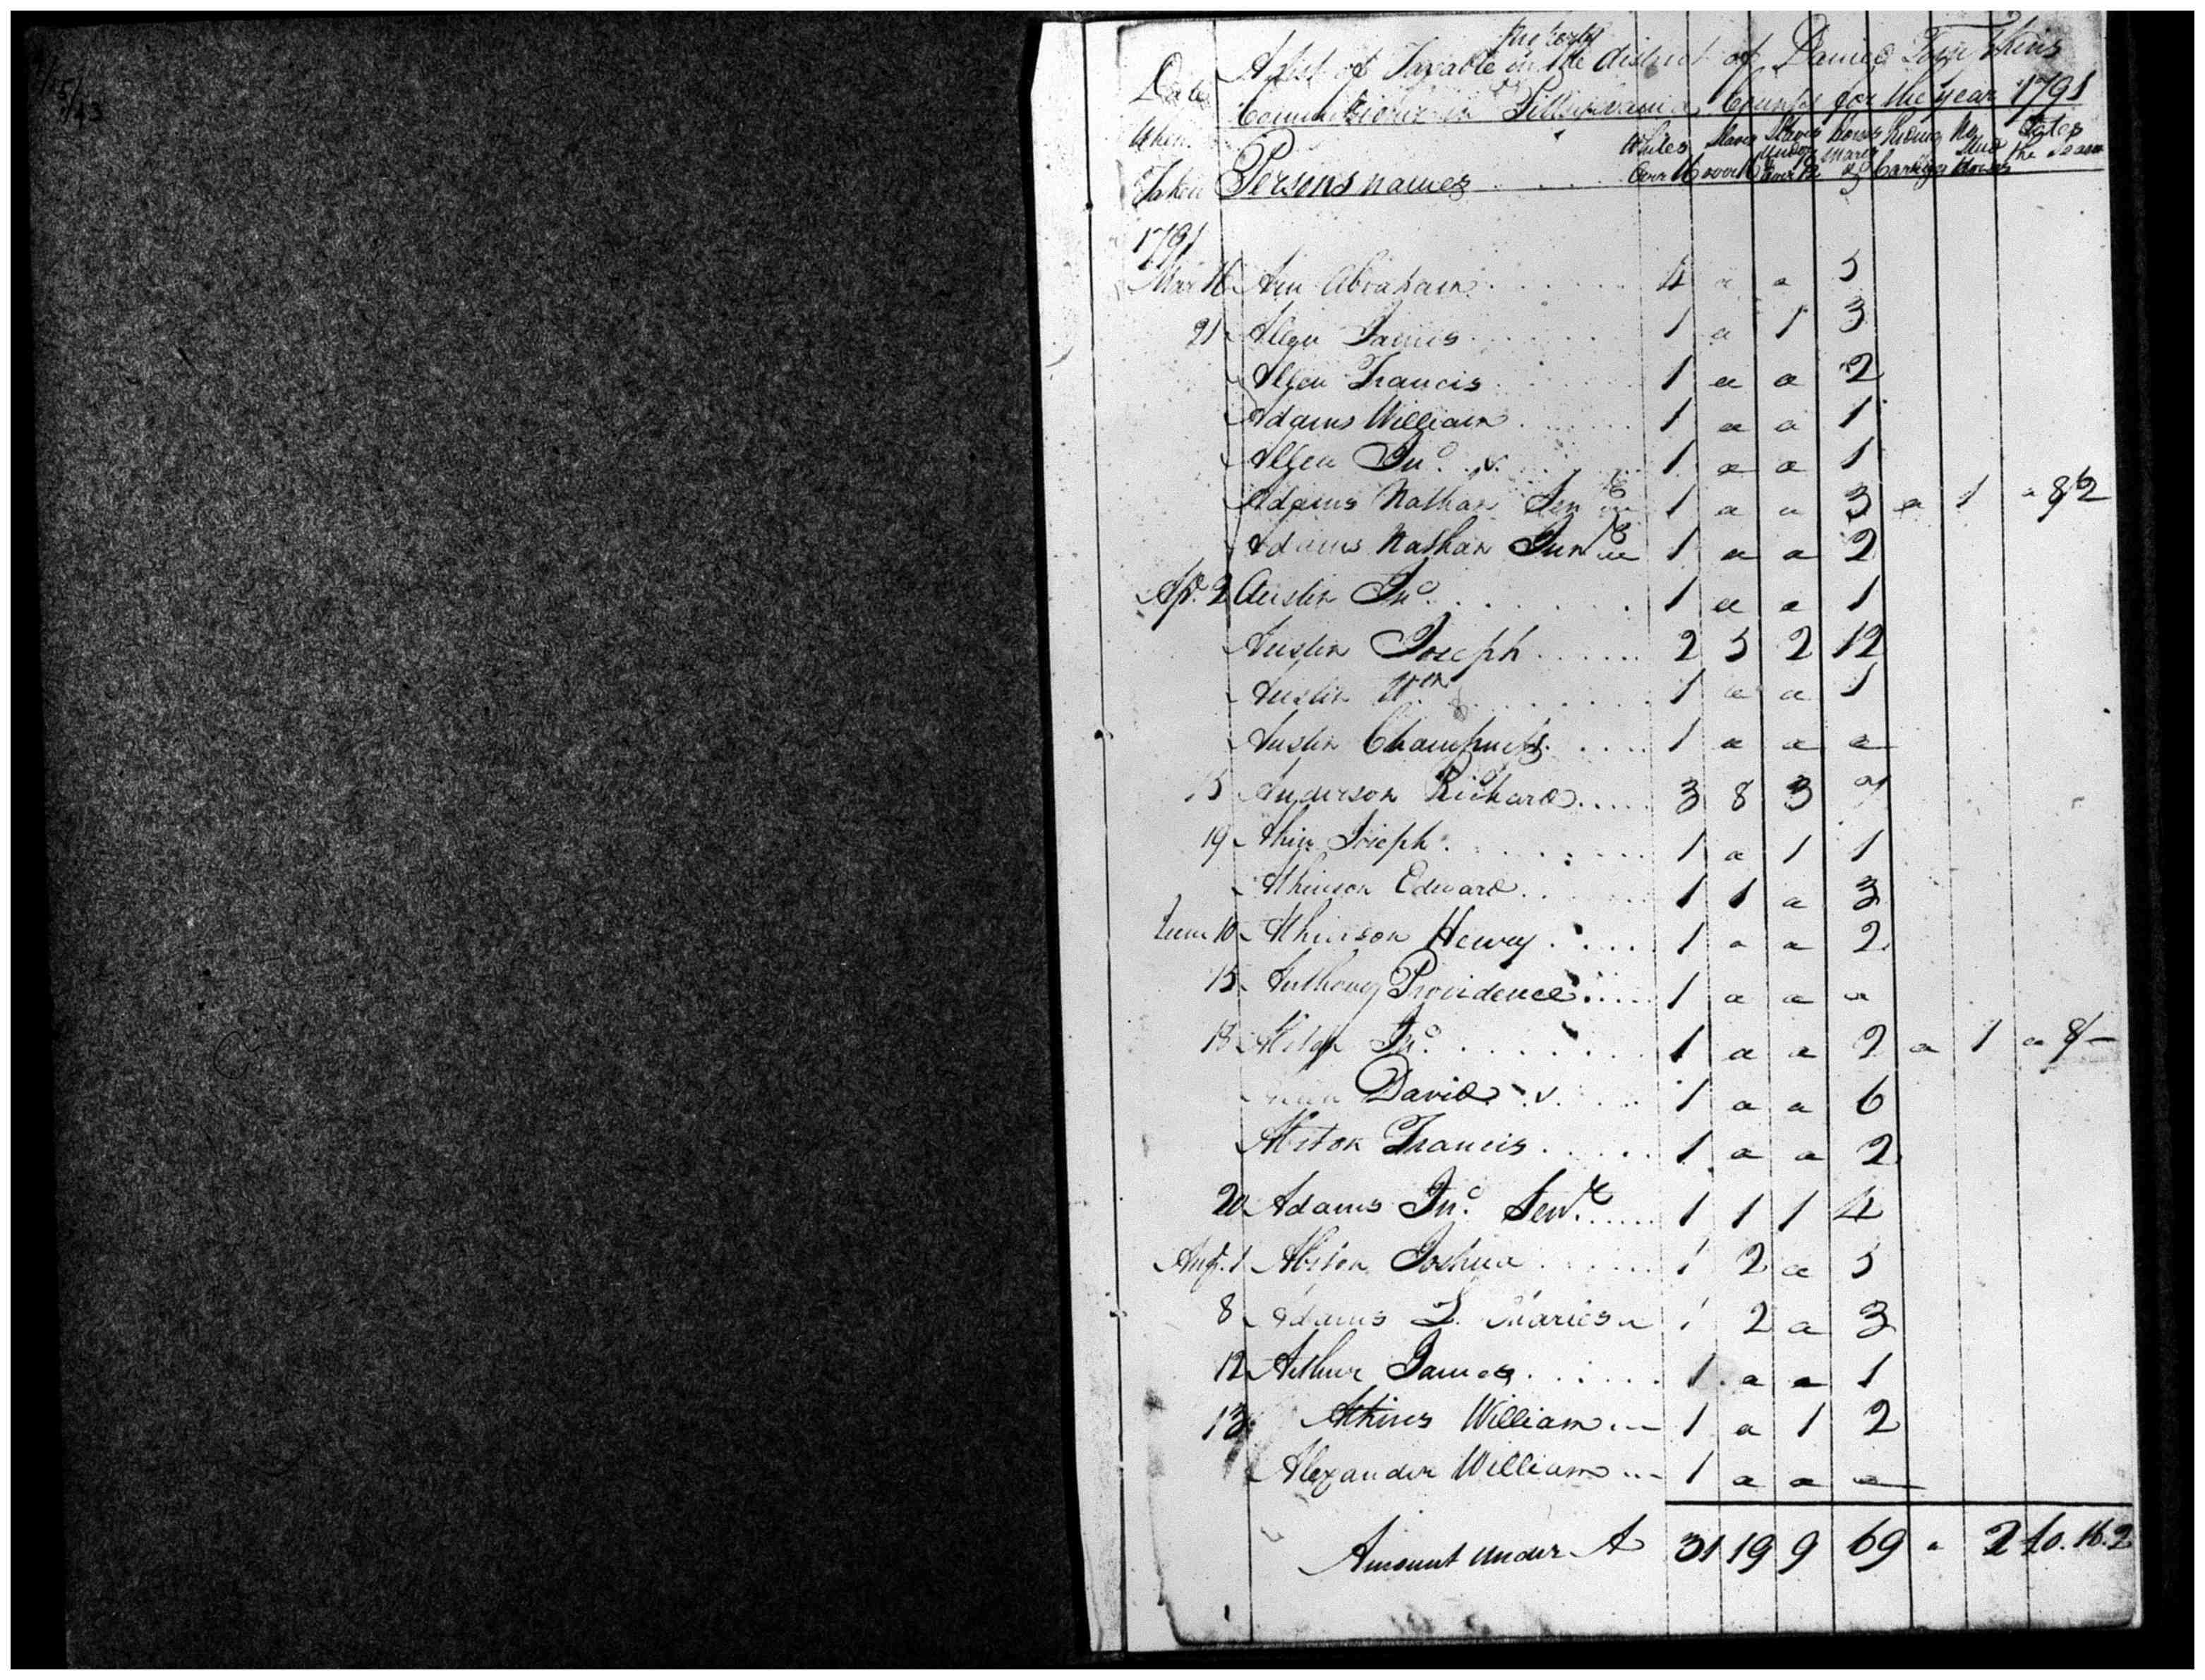 Date
When
Taken
A list of Taxable property in the district of Daniel
Commissioner in Pittsylvania County for the year 1791
Persons names . . . . Whites over 16 Slaves over 16 Slaves under 16 over 12 Horses Mares & Riding Carriages No Stud Horses Rates the Season
1791
Mar 16 Abraham . . . . . . 4 a a 5
21 Allen James . . . . . . 1 a 1 3
Allen Francis . . . . . 1 a a 2
Adams William . . . . . . 1 a a 1
Allen Jno. v. . . . . . 1 a a 1
Adams Nathan Senr 1 a a 3 a 1 a 8/2
Adams Nathan Junr 1 a a 2
Apl. 2 Austin Jno. . . . . . . . 1 a a 1
Austin Joseph . . . . . . 2 5 2 12
Austin Wm . . . . . . . . 1 a a 1
Austin . . . . 1 a a a
15 Anderson Richard . . . . . 3 8 3 7
19 Joseph . . . . . . . . 1 a 1 1
Atkinson Edward . . . . . . 1 1 a 3
June 10 Atkinson Henry . . . . . 1 a a 2
15 Anthony Providence . . . . . 1 a a a
15 Jno. . . . . . . . . 1 a a 2 a 1 a 8/–
David . v. . . . 1 a a 6
Francis . . . . . 1 a a 2
20 Adams Jno. Senr. . . . . . 1 1 1 4
Augt. 1 Joshua . . . . . . 1 2 a 5
8 Adams Charles 1 2 a 3
12 Arthur James . . . . . . 1 a a 1
13 Atkins William . . – 1 a 1 2
Alexander William . . – 1 a a a
Amount under A 31 19 9 69 a 2 £0.16.2